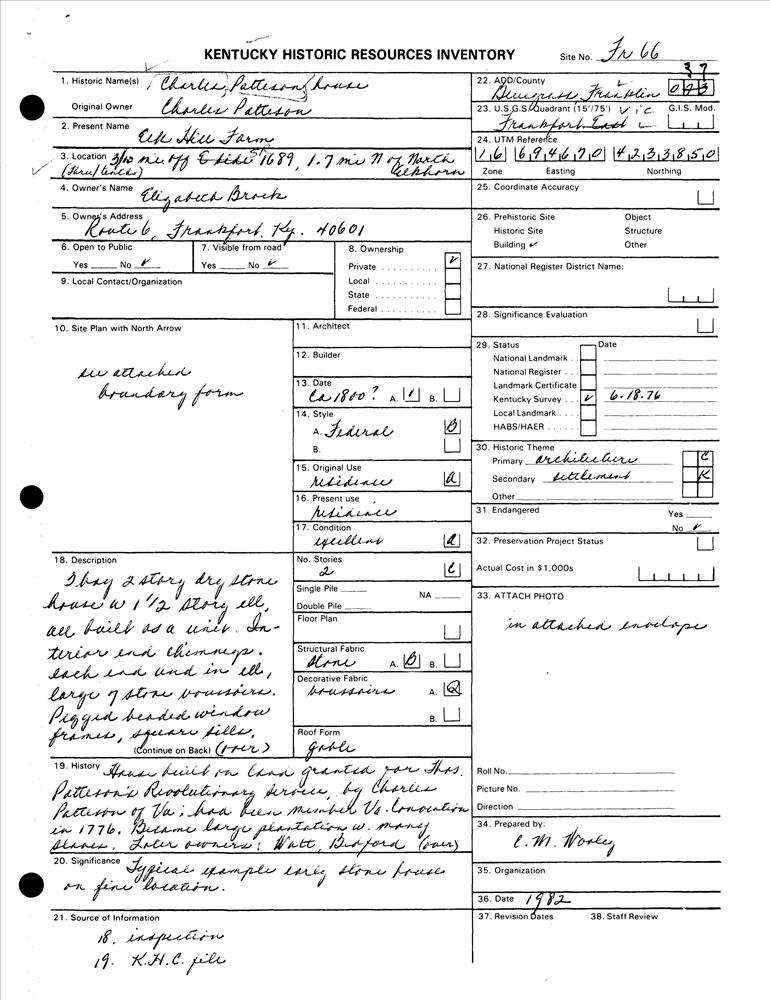 KENTUCKY HISTORIC RESOURCES INVENTORY
Site No. Fr 66
1. Historic Name(s) Charles Patteson house
Original Owner Charles Patteson
2. Present Name Elk Hill Farm
3. Location 3/10 mi. off E side 1689, 1.7 mi N of North
(thru/lines) Elkhorn
4. Owner's Name Elizabeth Brock
5. Owner's Address
Route 6, Frankfort, Ky. 40601
6. Open to Public
Yes No ✓
7. Visible from road
Yes No ✓
8. Ownership
Private . . . . . . . . . . ✓
Local . . . . . . . . . .
State . . . . . . . . . .
Federal . . . . . . . . . .
9. Local Contact/Organization
10. Site Plan with North Arrow
see attached
boundary form
11. Architect
12. Builder
13. Date
Ca 1800? A. 1 B.
14. Style
A. Federal B
B.
15. Original Use
residence a
16. Present use
residence
17. Condition
excellent a
No. Stories
2 C
Single Pile
NA
Double Pile
Floor Plan
Structural Fabric
stone A. B B.
Decorative Fabric
voussoirs A. Q
B.
Roof Form
gable
18. Description
3 bay 2 story dry stone
house w 1 1/2 story ell,
all built as a unit. In-
terior end chimneys.
each end and in ell,
large 7 stone voussoirs.
Pegged beaded window
frames, square sills,
(Continue on Back) (over)
19. History House built on land granted for Thos.
Patteson's Revolutionary Service, by Charles
Patteson of Va; had been member Va. Convention
in 1776. Became large plantation w. many
slaves. Later owners: Watt, Bedford (over)
20. Significance Typical example early stone house
on fine location.
21. Source of Information
18. inspection
19. K.H.C. file
22. ADD/County
Bluegrass Franklin 37
23. U.S.G.S. Quadrant (15'/75') G.I.S. Mod.
Frankfort East
24. UTM Reference
16 694670 4233850
Zone Easting Northing
25. Coordinate Accuracy
26. Prehistoric Site Object
Historic Site Structure
Building ✓ Other
27. National Register District Name:
28. Significance Evaluation
29. Status Date
National Landmark . .
National Register . . .
Landmark Certificate
Kentucky Survey . . . ✓ 6-18-76
Local Landmark . . . .
HABS/HAER . . . . . .
30. Historic Theme
Primary architecture C
Secondary settlement K
Other
31. Endangered Yes
No ✓
32. Preservation Project Status
Actual Cost in $1,000s
33. ATTACH PHOTO
in attached envelope
Roll No.
Picture No.
Direction
34. Prepared by:
C. M. Wooley
35. Organization
36. Date 1982
37. Revision Dates 38. Staff Review